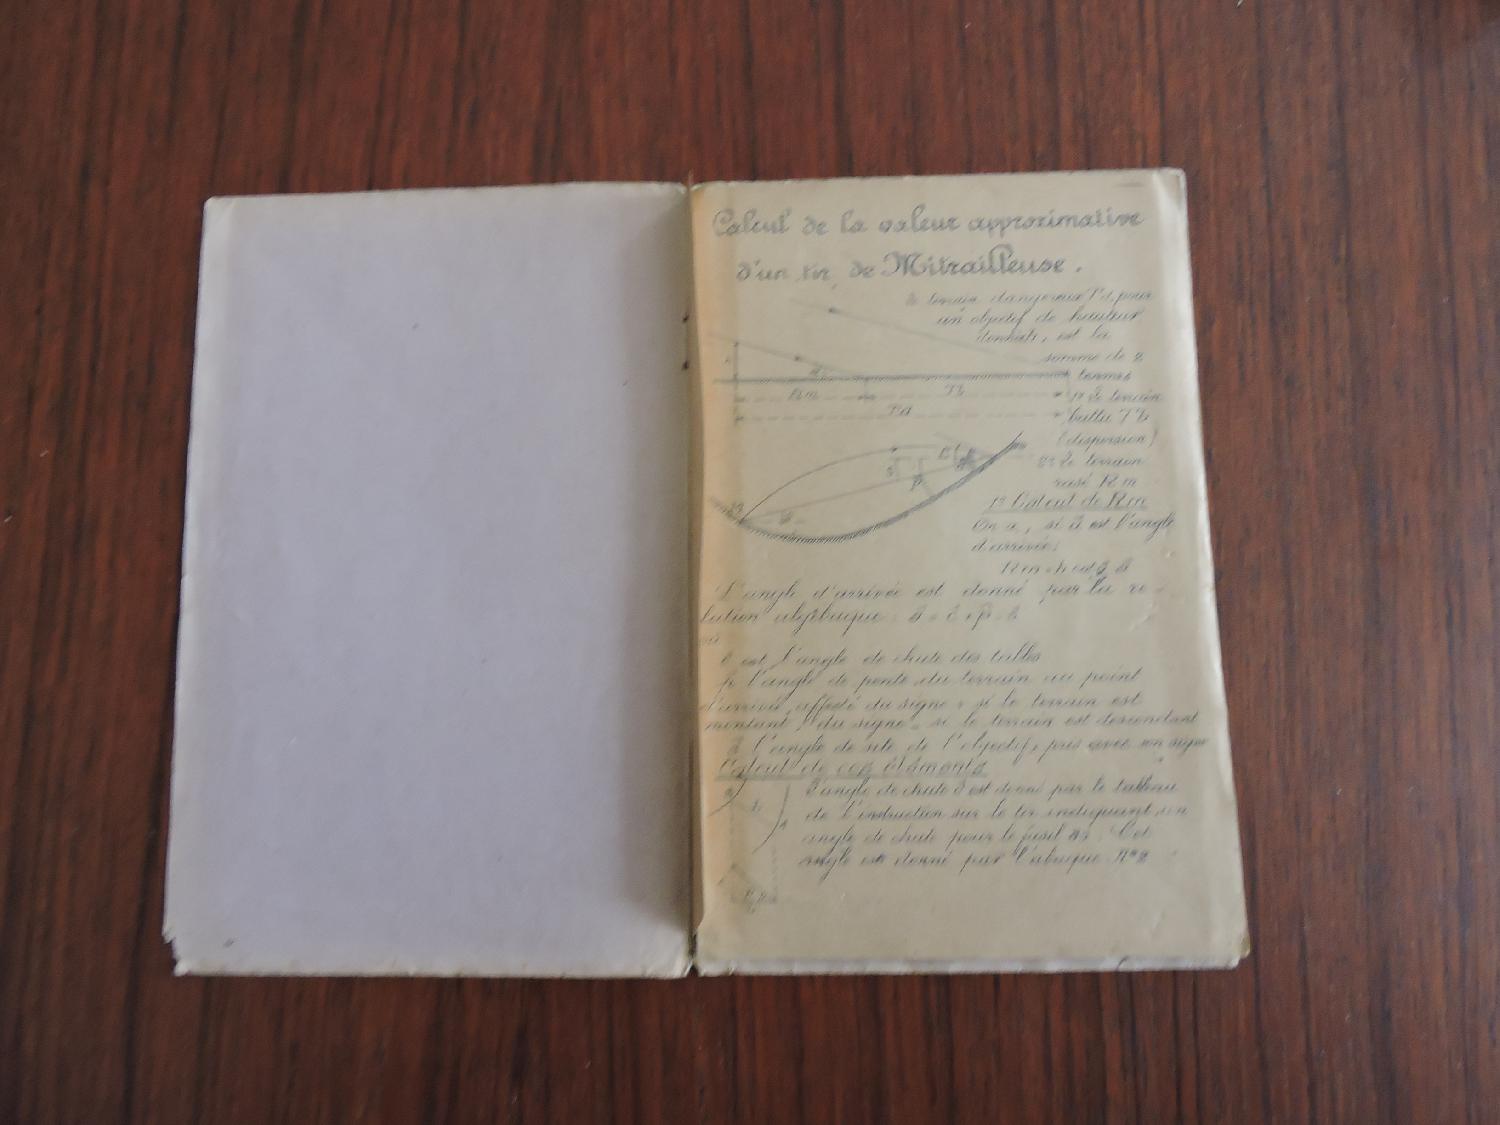 Calcul de la valeur approximative
d'un tir de Mitrailleuse.
le terrain dangereux Td, pour
un objectif de hauteur
donnée, est la
somme de 2
termes
1º le terrain
battu Tb
(dispersion)
2º le terrain
rasé Rm
Rm
Tb
Td
1º Calcul de Rm
On a, si a est l'angle
d'arrivée:
Rm = h cotg a
L'angle d'arrivée est donné par la re-
lation algébrique:
où
est l'angle de chute des tables
p l'angle de pente du terrain au point
d'arrivée, affecté du signe + si le terrain est
montant, du signe - si le terrain est descendant
l'angle de site de l'objectif, pris avec son signe
Calcul de ces éléments
l'angle de chute est donné par le tableau
de l'instruction sur le tir indiquant son
angle de chute pour le fusil Cet
angle est donné par l'abaque Nº2